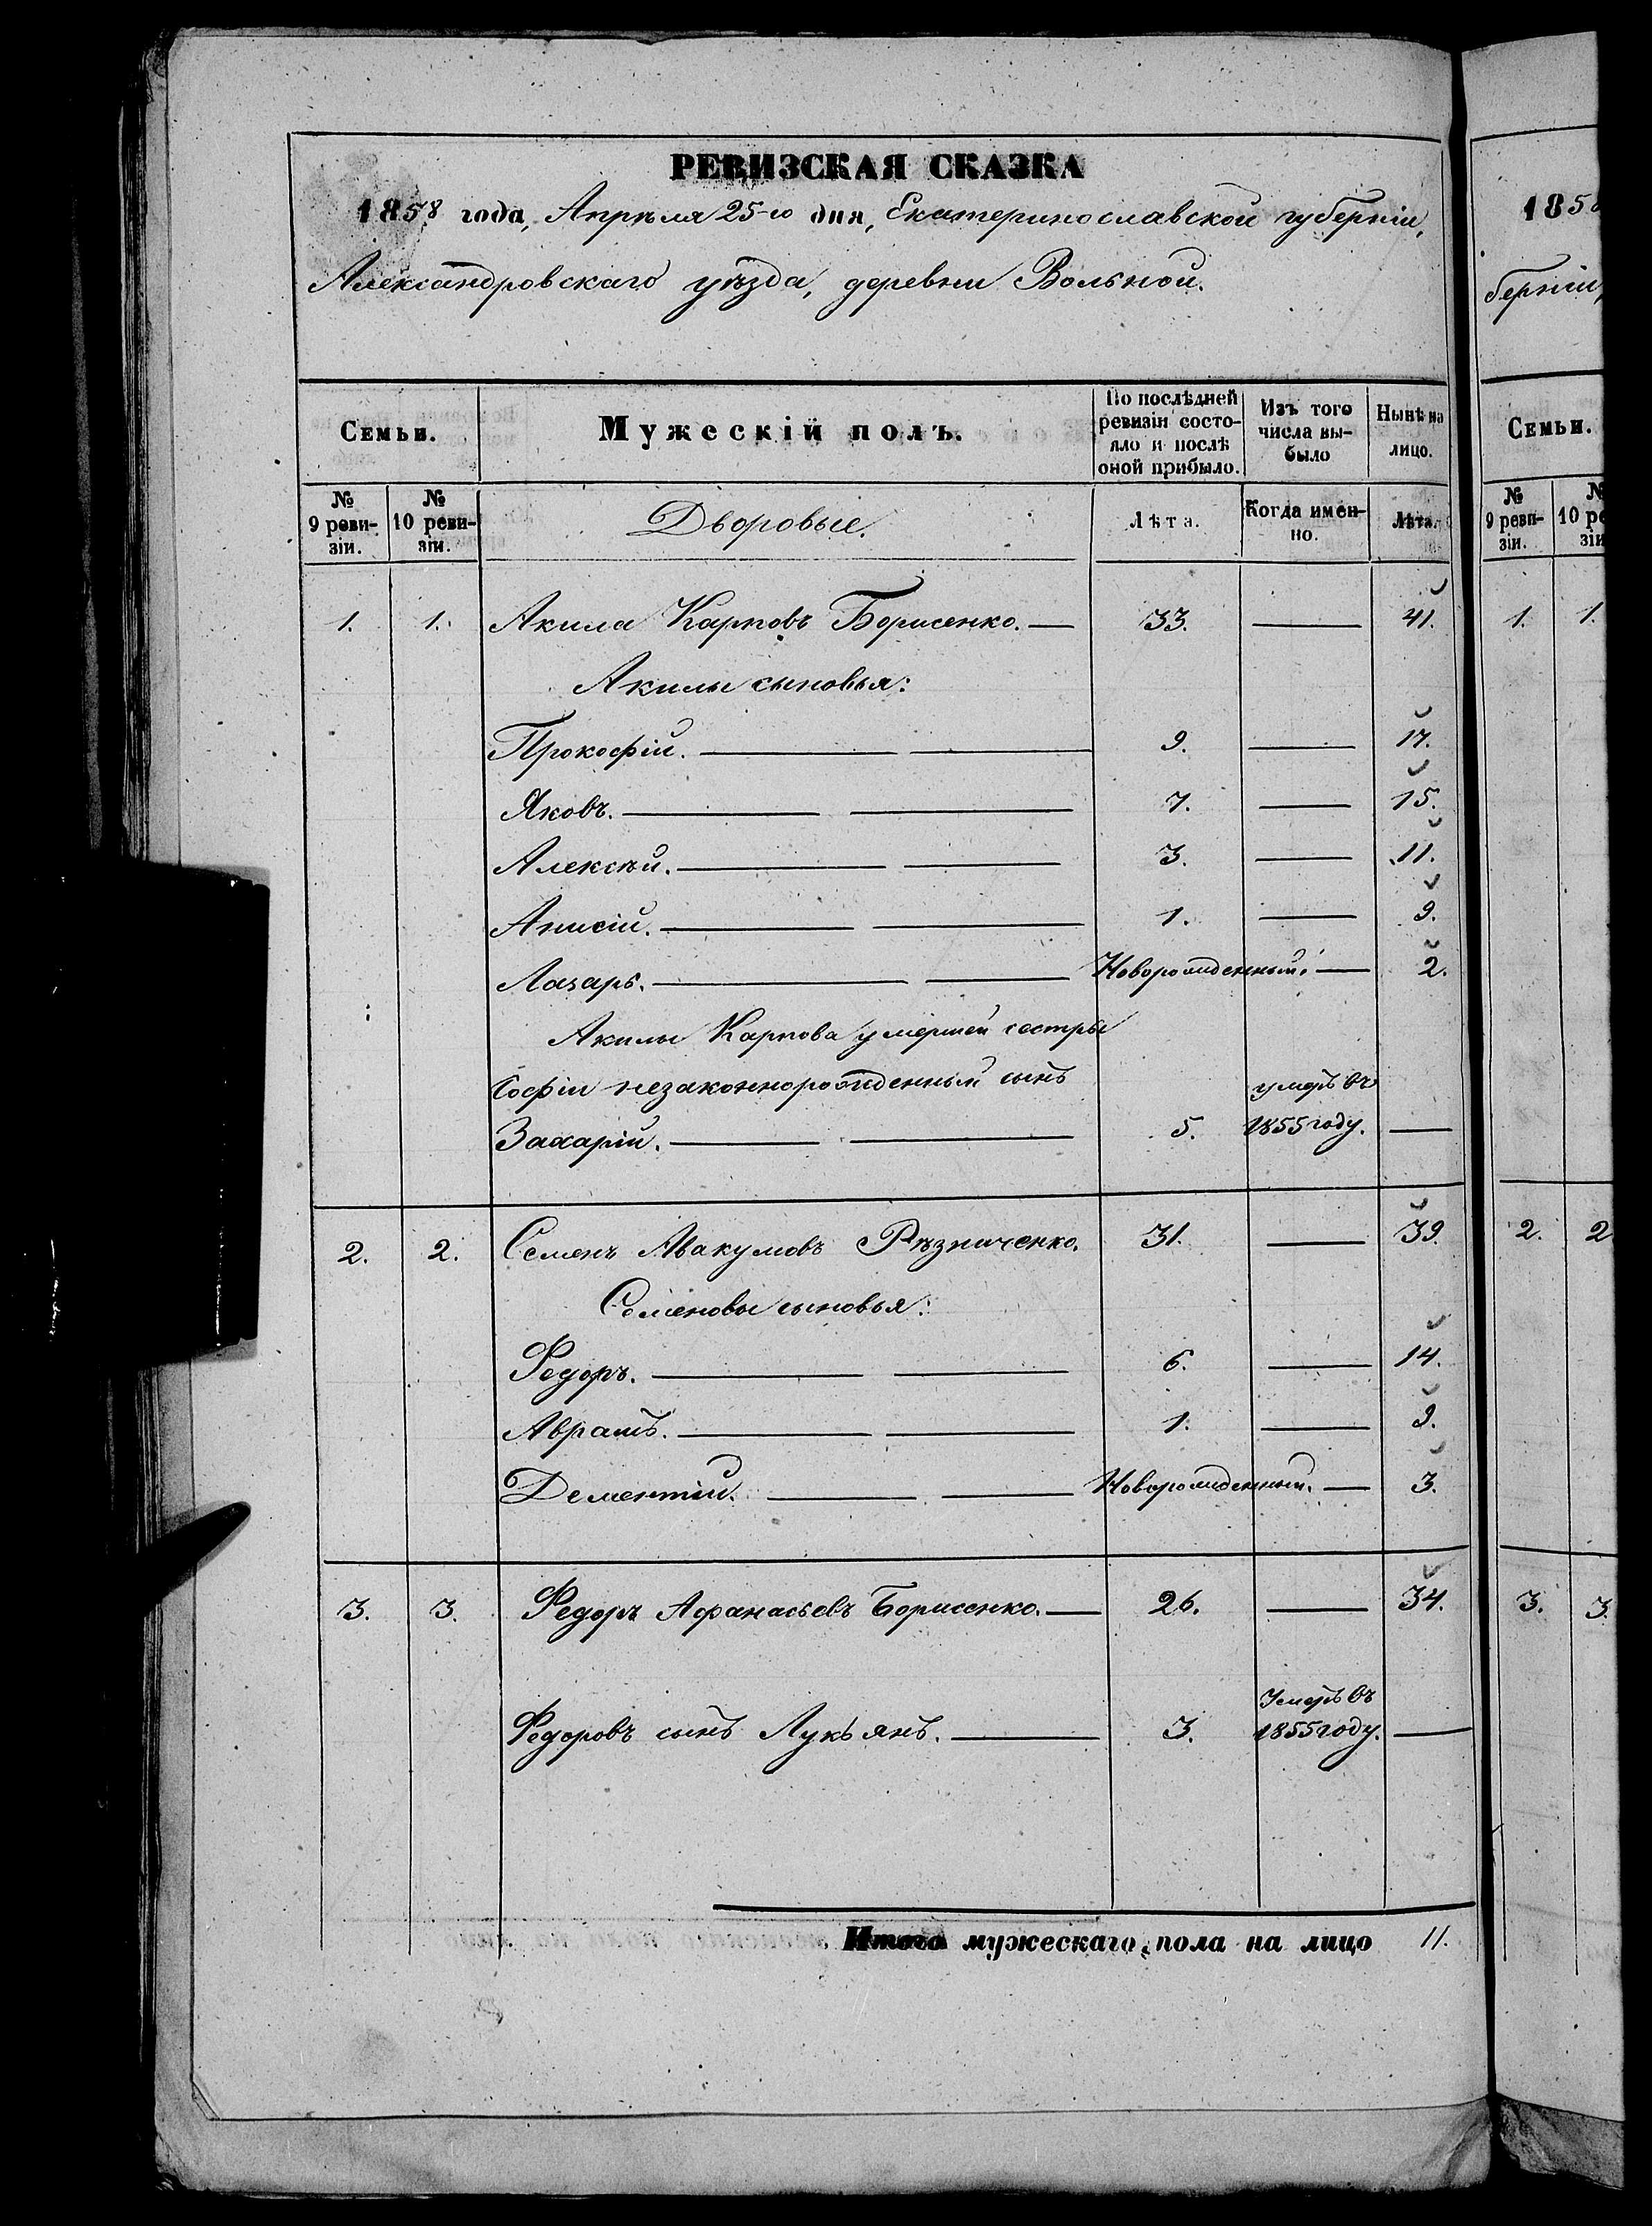 РЕВИЗСКАЯ СКАЗКА
1858 года, Апрѣля 25-го дня, Екатеринославской губерніи,
Александровскаго уѣзда, деревни Вольной.
Семьи. Мужескій полъ. По послѣдней ревизіи состояло и послѣ оной прибыло. Изъ того числа выбыло Нынѣ на лицо.
№ 9 ревизіи. № 10 ревизіи. Дворовые. Лѣта. Когда именно. Лѣта.
1. 1. Акила Карповъ Борисенко. — 33. — 41.
Акилы сыновья:
Прокофій. — — 9. — 17.
Яковъ. — — 7. — 15.
Алексѣй. — — 3. — 11.
Анисій. — — 1. — 9.
Лазарь. — — Новорожденный. — 2.
Акилы Карпова умершей сестры
Софіи незаконнорожденный сынъ умеръ въ
Захарій. — — 5. 1855 году. —
2. 2. Семенъ Авакумовъ Рѣзниченко. 31. — 39.
Семеновы сыновья:
Федоръ. — — 6. — 14.
Аврамъ. — — 1. — 9.
Дементій. — — Новорожденный. — 3.
3. 3. Федоръ Афанасьевъ Борисенко. — 26. — 34.
Умеръ въ
Федоровъ сынъ Лукьянъ. — 3. 1855 году. —
Итого мужескаго пола на лицо 11.
185
берніи,
Семьи.
№ 9 ревизіи. № 10 ре
зіи
1. 1.
2. 2
3. 3.